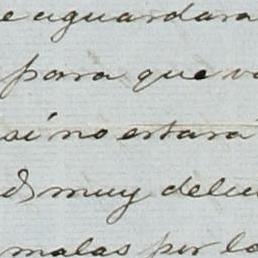 e aguardara
para que v
si no estara
muy deli
malas por lo